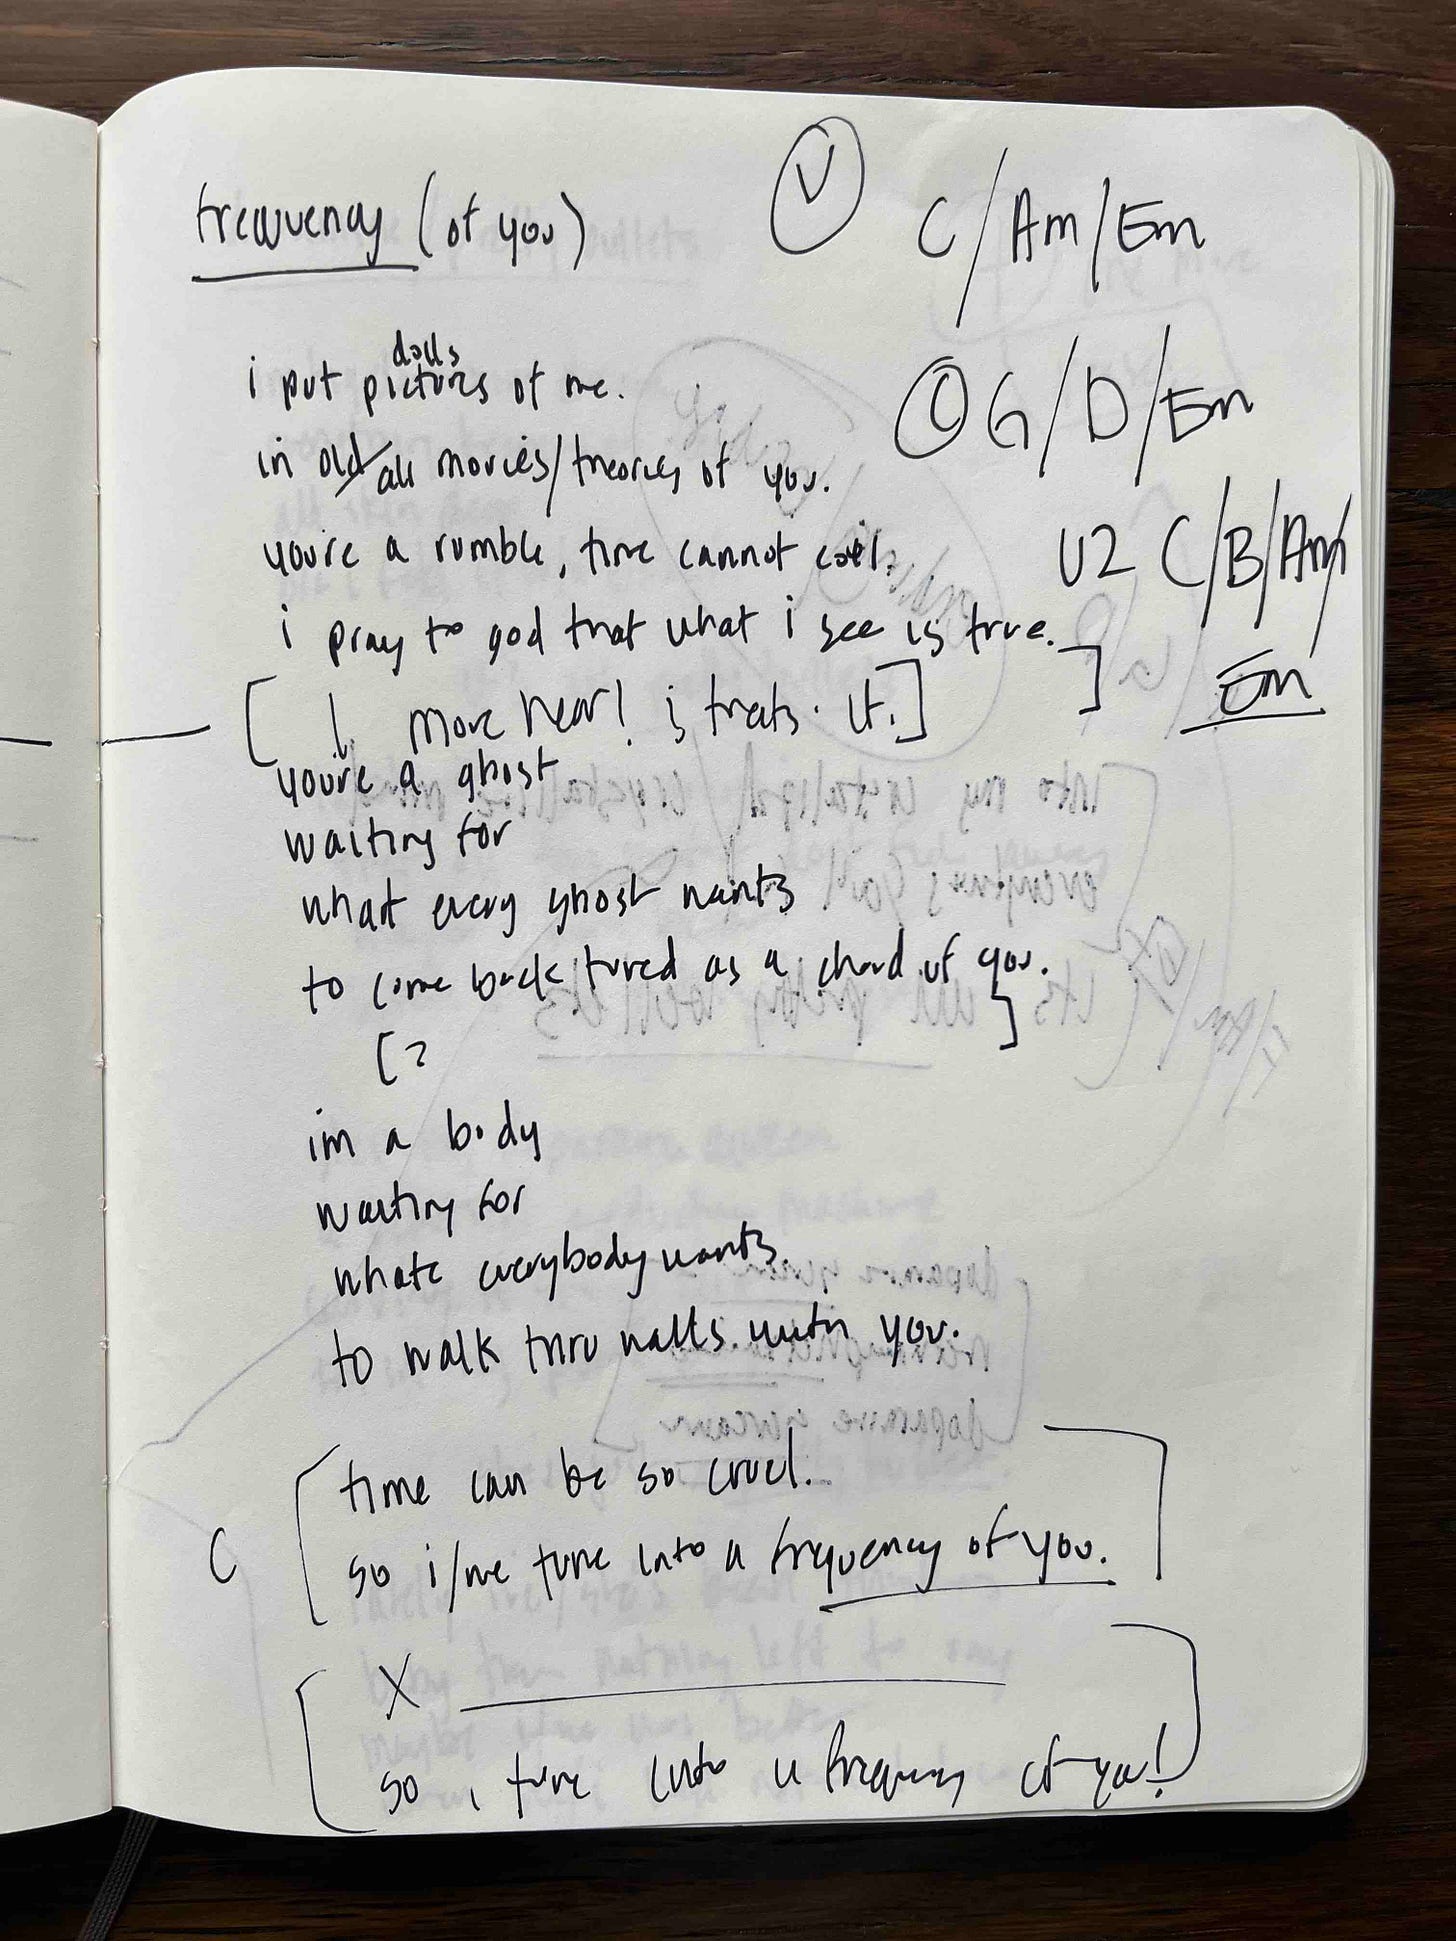 frequency (of you)
V C/Am/Em
dolls
i put pictures of me.
C G/D/Em
in old/all movies/theories of you.
you're a rumble, time cannot
V2 C/B/Am/
Em
i pray to god that what i see is true.
[ ]
you're a ghost
waiting for
what every ghost wants
to come back tuned as a chord of you.
[? ]
im a body
waiting for
whats everybody wants
to walk thru walls with you.
time can be so cruel.
C
so i/we tune into a frequency of you.
X
so i tune into a frequency of you!